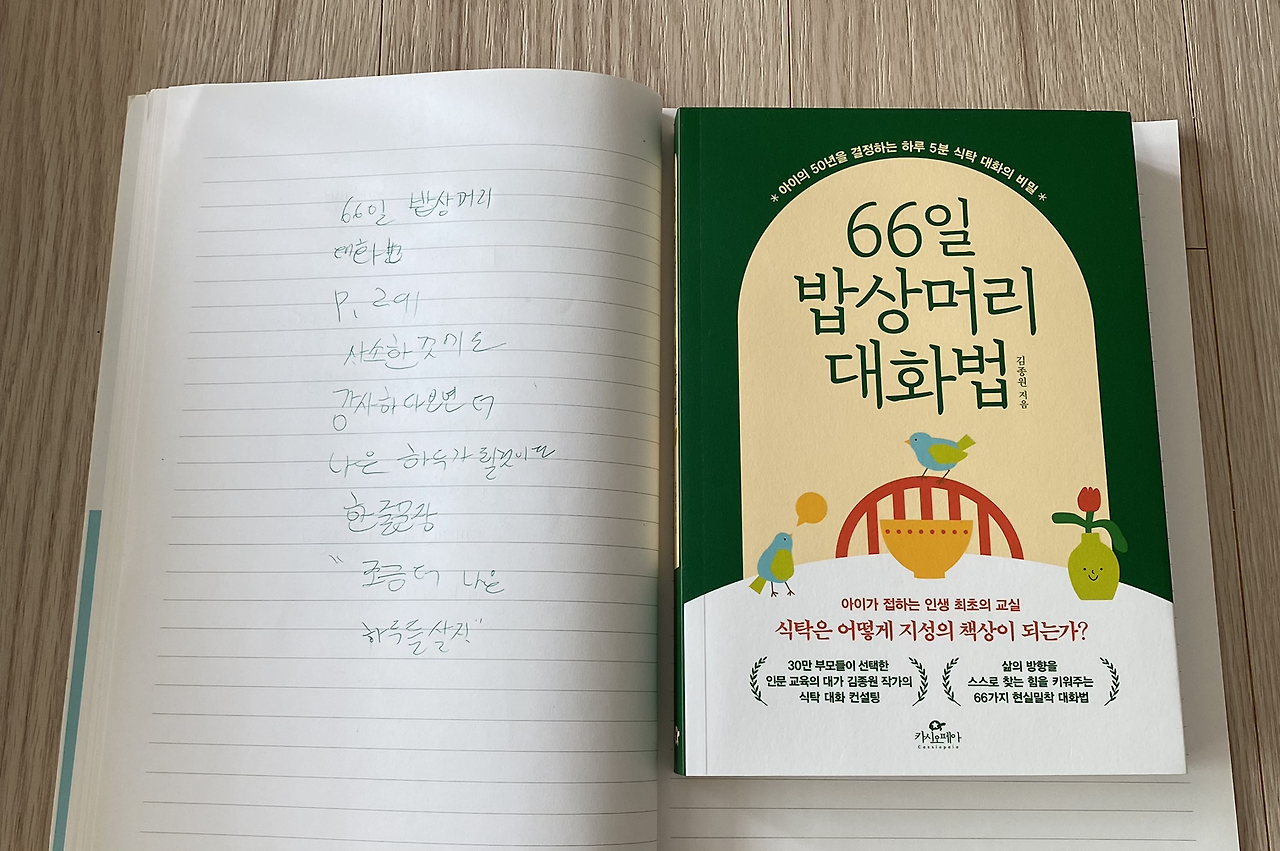 66일 밥상머리
대화법
사소한것이도
감사하다보면 더
나은 하루가 될것이다
한줄문장
"조금더 나은
하루를 살자"
* 아이의 50년을 결정하는 하루 5분 식탁 대화의 비밀 *
66일
밥상머리
대화법
김종원 지음
아이가 접하는 인생 최초의 교실
식탁은 어떻게 지성의 책상이 되는가?
30만 부모들이 선택한
인문 교육의 대가 김종원 작가의
식탁 대화 컨설팅
삶의 방향을
스스로 찾는 힘을 키워주는
66가지 현실밀착 대화법
카시오페아
Cassiopeia